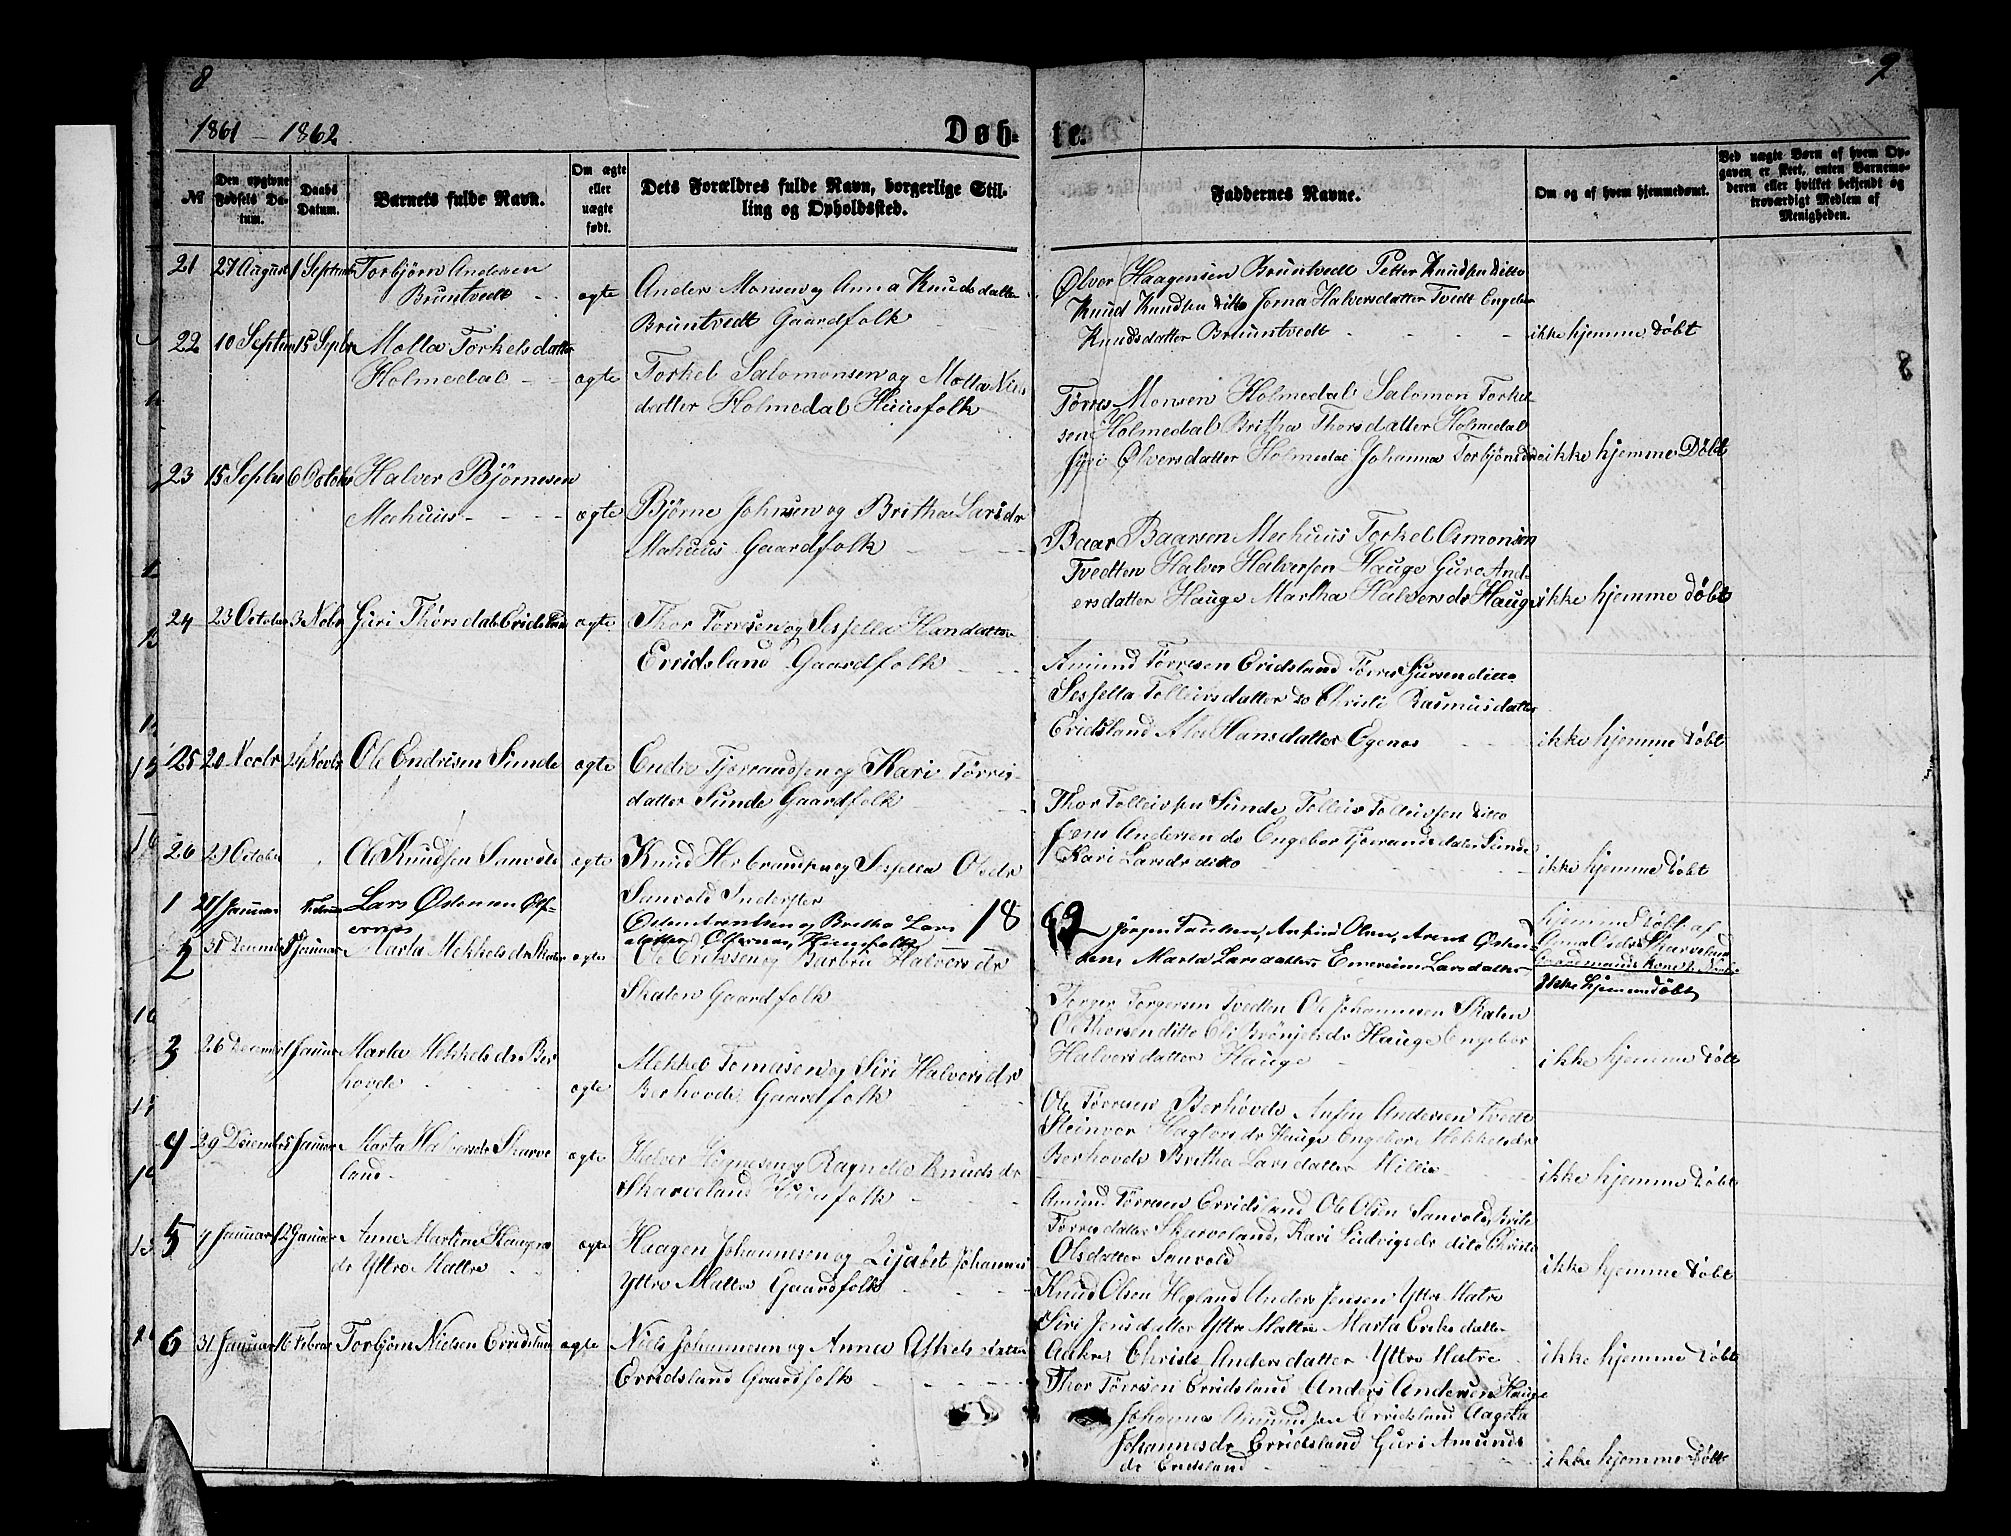 8
9
1861 – 1862
Døb-
te.
№
Den opgivne Fødsels Datum.
Daabs Datum.
Barnets fulde Navn.
Om ægte eller uægte født.
Dets Forældres fulde Navn, borgerlige Stilling og Opholdssted.
Faddernes Navne.
Om og af hvem hjemmedøbt.
Ved uægte Børn af hvem Opgaven er skeet, enten Barnemoderen eller hvilket bekjendt og troværdigt Medlem af Menigheden.
21 27 August 1 Septembr Torbjørn Andersen
Bruntvedt - - ægte
Anders Monsen og Anna Knudsdatter
Bruntvedt Gaardfolk
Ølver Haagensen Bruntvedt Petter Knudsen Ditto
Knud Knudsen Ditto Jorna Halversdatter Tvedt Engebor
Knudsdatter Bruuntvedt - - - ikke hjemme Døbt
22 10 Septem 15 Septbr Molla Torkelsdatter
Holmedal - - ægte
Torkel Salomonsen og Molla Niels
datter Holmedal Huusfolk
Tørres Monsen Holmedal Salomon Torkel
sen Holmedal Britha Thorsdatter Holmedal
Ølversdatter Holmedal Johanna ikke hjemme Døbt
23 15 Septbr 6 Octobr Halver Bjørnesen
Meehuus - - - ægte
Bjørne Johnsen og Britha Larsdr
Mehuus Gaardfolk
Baar Baarsen Meehuus Torkel Osmonsen
Tvedten Halver Halversen Hauge Guro And-
ersdatter Hauge Martha Halversdr Hauge ikke hjemme døbt
24 23 October 3 Nobr Guri Thorsdatr ægte
Thor Tørresen og Sessella Hansdatter
Erridsland Gaardfolk
Amund Tørresen Eridsland Tørres ditto
Sessella Tolleivsdatter do Christi Rasmusdatter
Eridsland Hansdatter Egenes - - ikke hjemme Døbt
25 20 Novbr 24 Novbr Ole Endresen Sunde ægte
Endre Tjerrandsen og Kari Tørris-
datter Sunde Gaardfolk
Thor Tolleivsen Sunde Tolleiv Tolleivsen Ditto
Jens Andersen do Engebor Tjerrandsdatter Sunde
Kari Larsdr ditto - - ikke hjemme Døbt
26 29 Octobr Ole Knudsen Sanvold ægte
Knud og Sessella Olsdr
Sanvold Inderster
1 Januar Lars Østensen Øl-
fernes
Larsdatter Ølfernes, Huusfolk
18
62
Jørgen Arent Østen-
sen, Marta Larsdatter, Larsdatter
hjemme Døbt af
Anna Olsdr Skarveland
ikke hjemmedøbt
2 31 Decembr Januar Marta Mekkelsdr Skaten ægte
Ole Eriksen og Barbru Halversdr
Skaten Gaardfolk
Torger Torgersen Tvedten Ole Johannesen Skaten
Ole Thorsen ditto Eli Brønjelsdr Hauge Engebor
Halversdatter Hauge - ikke hjemme Døbt
3 26 Decembr Januar Marta Mekkelsdr Ber
hovde ægte
Mekkel Tomassen og Siri Halversdr
Berhovde Gaardfolk
Ole Tørresen Berhovde Anfin Andersen Tvedt
Steinvor Hauge Engebor Mekkelsdr
Berhovde Britha Larsdatter Millie - ikke hjemme Døbt
4 29 Desember 5 Januar Marta Halversdr Skarve
land - ægte
Halver og Ragnelle Knudsdr
Skarveland Huusfolk
Amund Tørresen Erridsland Ole Olsen Sanvold,
Tørresdatter Skarveland, Kari Ludvigsdr dito Christi
Olsdatter Sanvold ikke hjemme Døbt
5 7 Januar 12 Januar Anne Martine Haagens
dr Yttre Mattre ægte
Haagen Johannesen og Lisabet Johannes
Yttre Mattre Gaardfolk
Knud Olsen Hegland Anders Jensen Yttre Matre
Siri Jensdatter Yttre Mattre Marta Eriksdatter
Aakre Christi Andersdatter Yttre Matre ikke hjemme Døbt
6 31 Januar 16 Februar Torbjørn Nielsen Erridsland ægte
Niels Johannesen og Anna Askelsdatter
Erridsland Gaardfolk
Thor Tørresen Erridsland Anders Andersen Hauge
Johannes Amundsen Erridsland Aagota
Johannesdr Erridsland Guri Amunds
dr Eridsland ikke hjemme Døbt